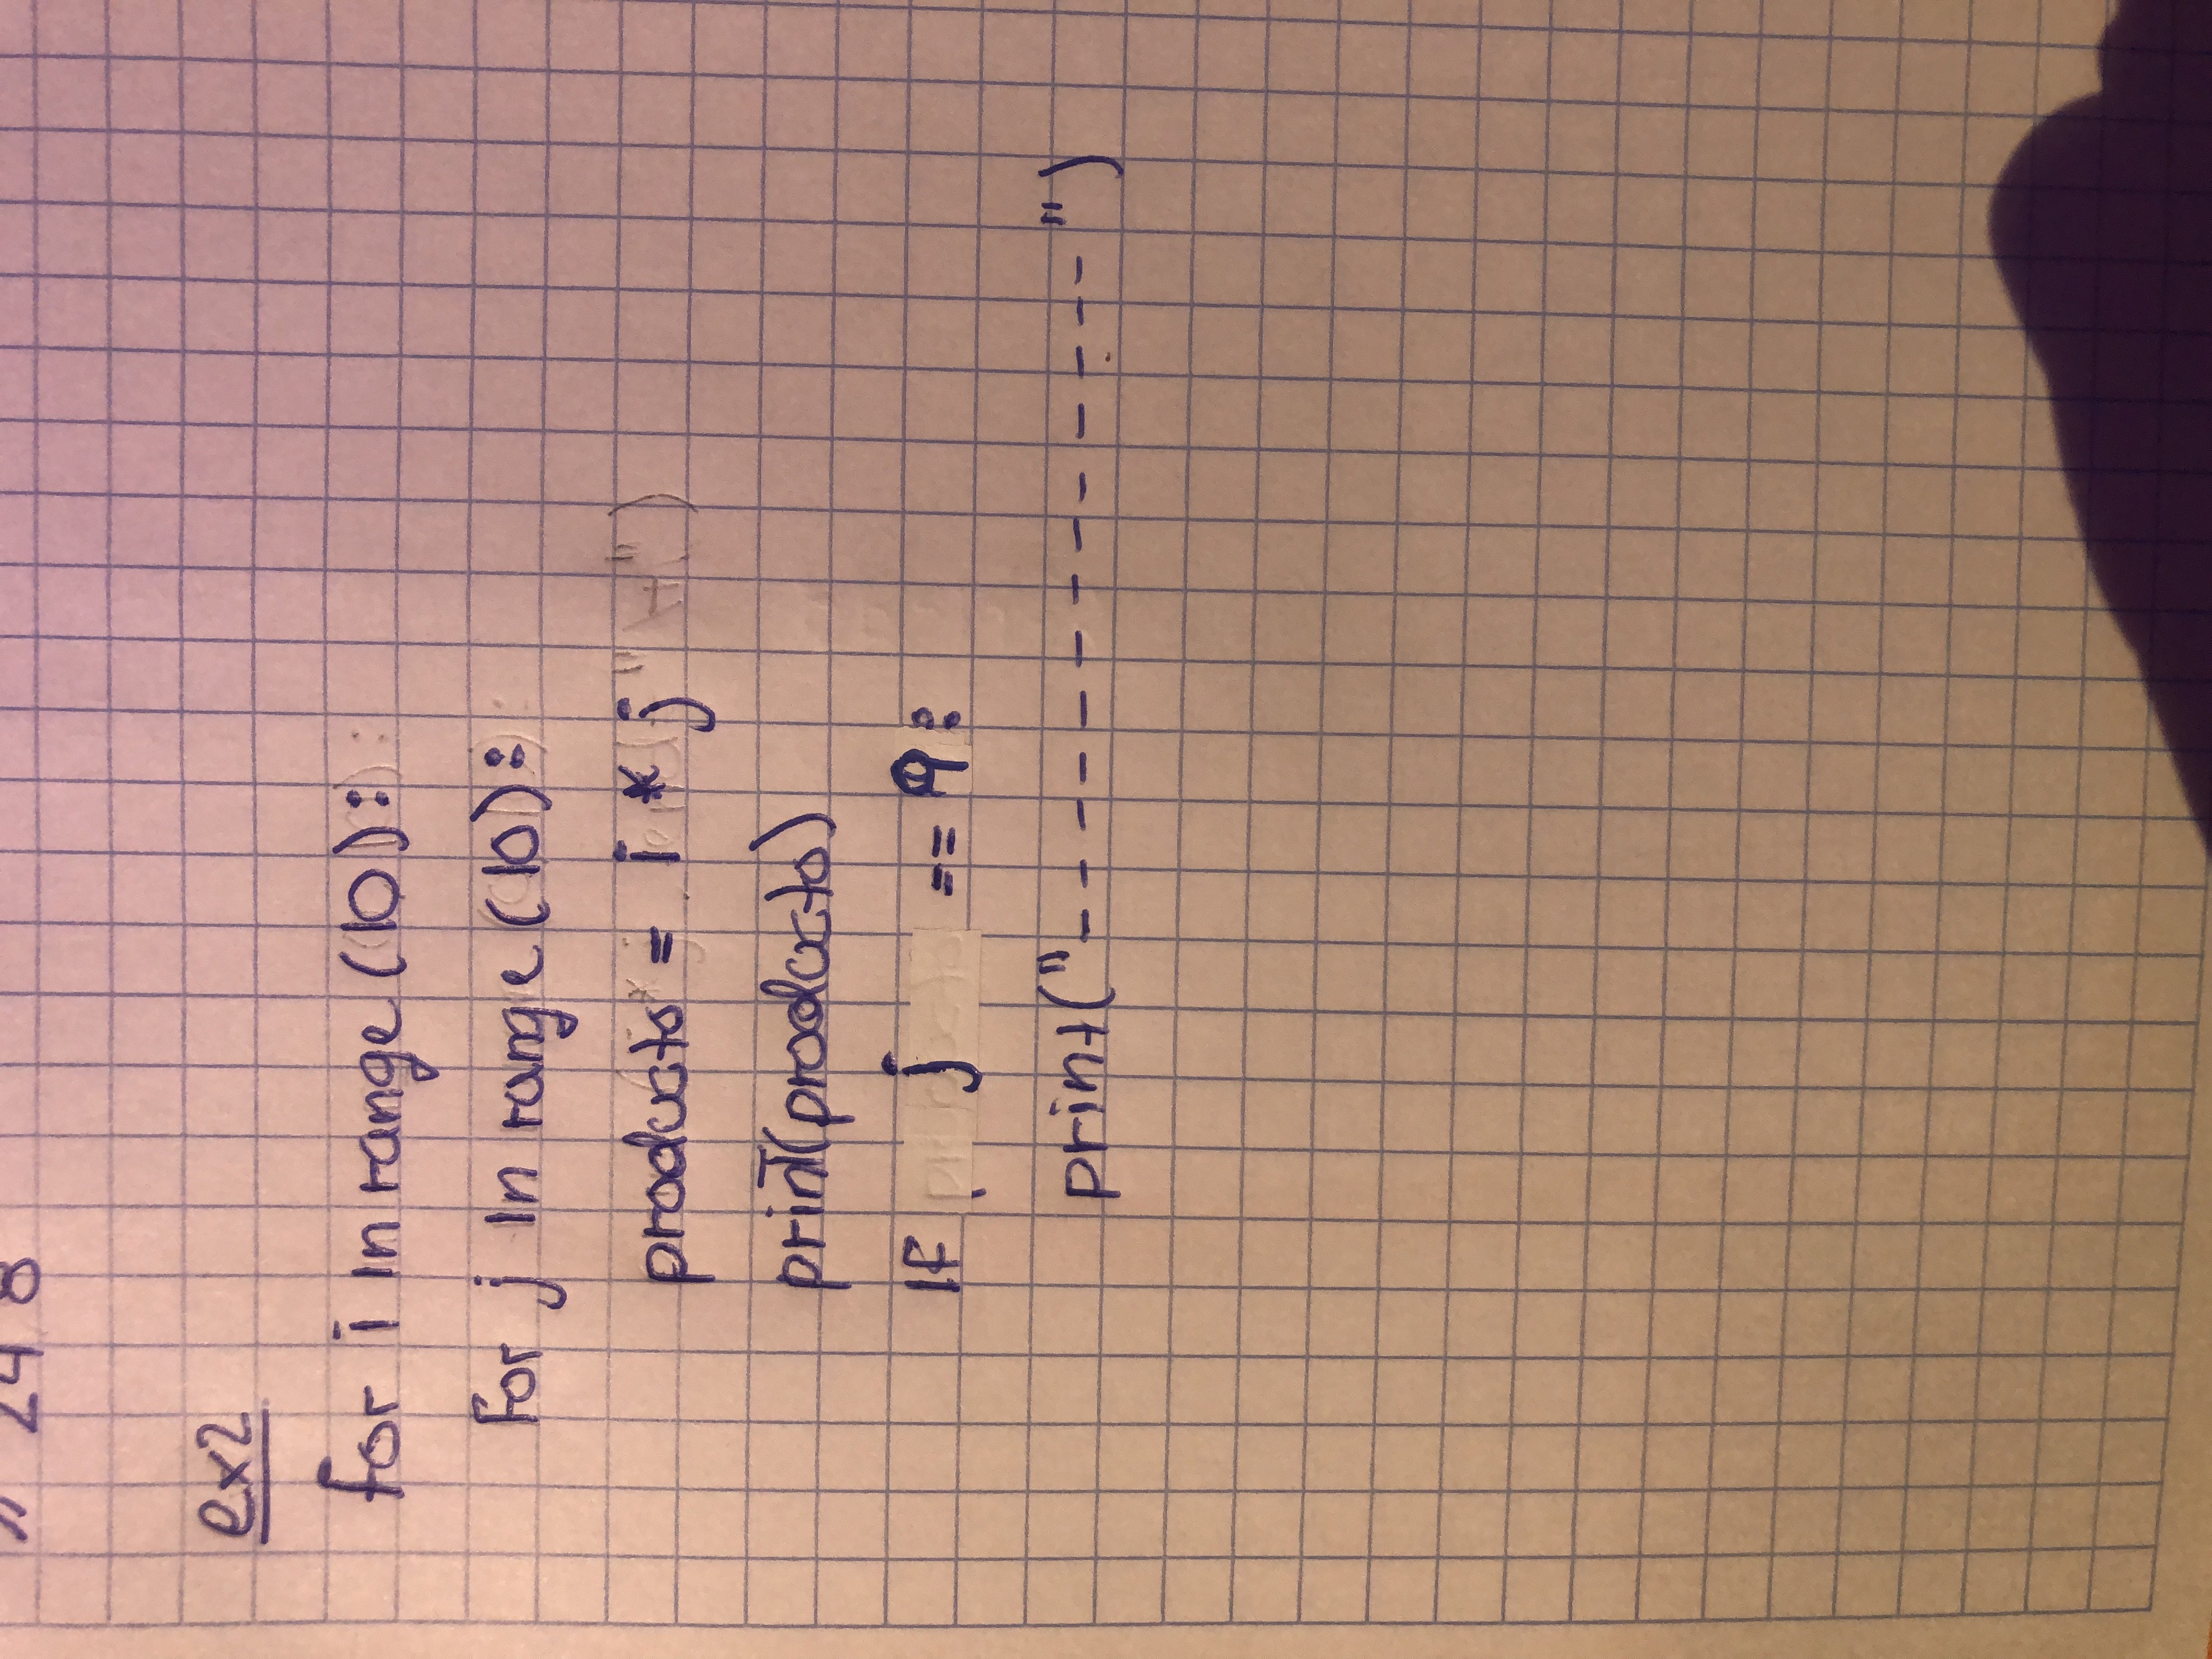 248
ex2
for i in range (10):
for j in range (10):
producto = i * j
print(producto)
if j == 9:
print("-------------")